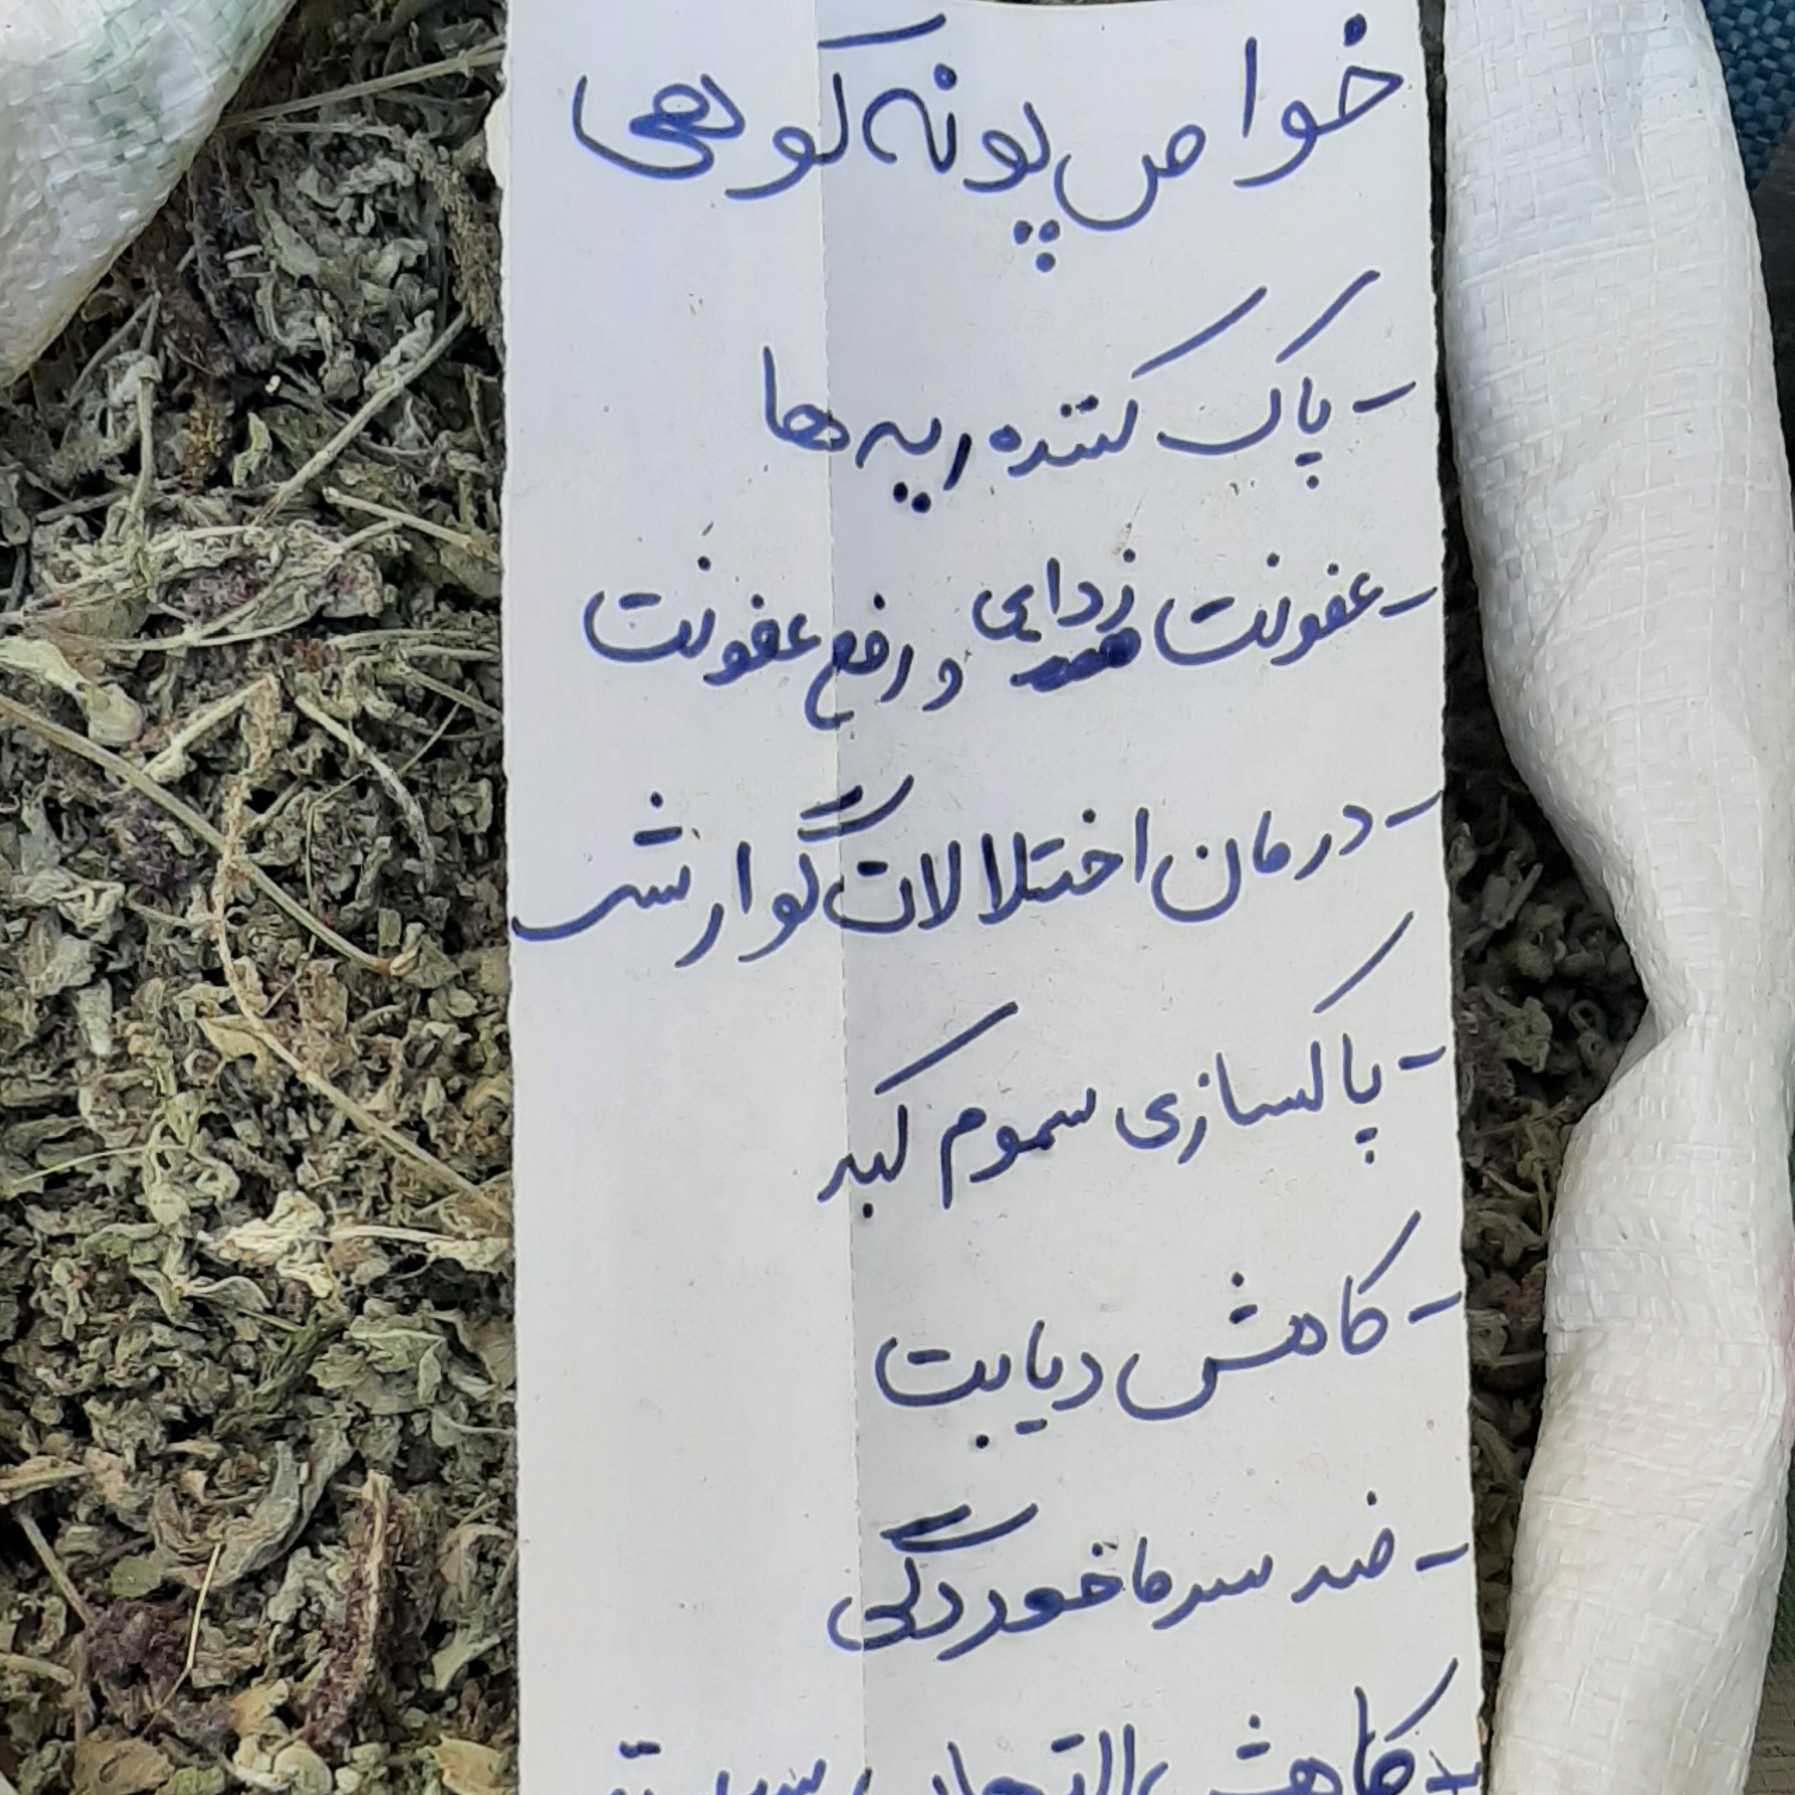 خواص پونه کوهی
- پاک کننده ریه ها
- عفونت زدایی و رفع عفونت
- درمان اختلالات گوارش
- پاکسازی سموم کبد
- کاهش دیابت
- ضد سرماخوردگی
- کاهش التهاب